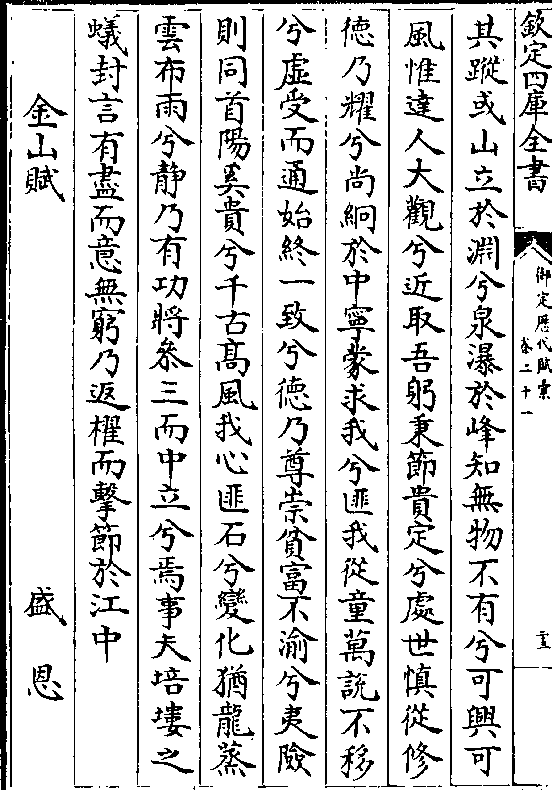 欽定四庫全書
御定歴代賦彙
卷二十一
其蹤或山立於淵兮泉瀑於峰知無物不有兮可興可
風惟達人大觀兮近取吾躬秉節貴定兮處世慎從修
德乃耀兮尚絅於中寧蒙求我兮匪我從童萬說不移
兮虛受而通始終一致兮德乃尊崇貧富不渝兮夷險
則同首陽奚貴兮千古高風我心匪石兮變化猶龍蒸
雲布雨兮静乃有功將叅三而中立兮焉事夫培塿之
蟻封言有盡而意無窮乃返櫂而擊節於江中
金山賦 盛恩